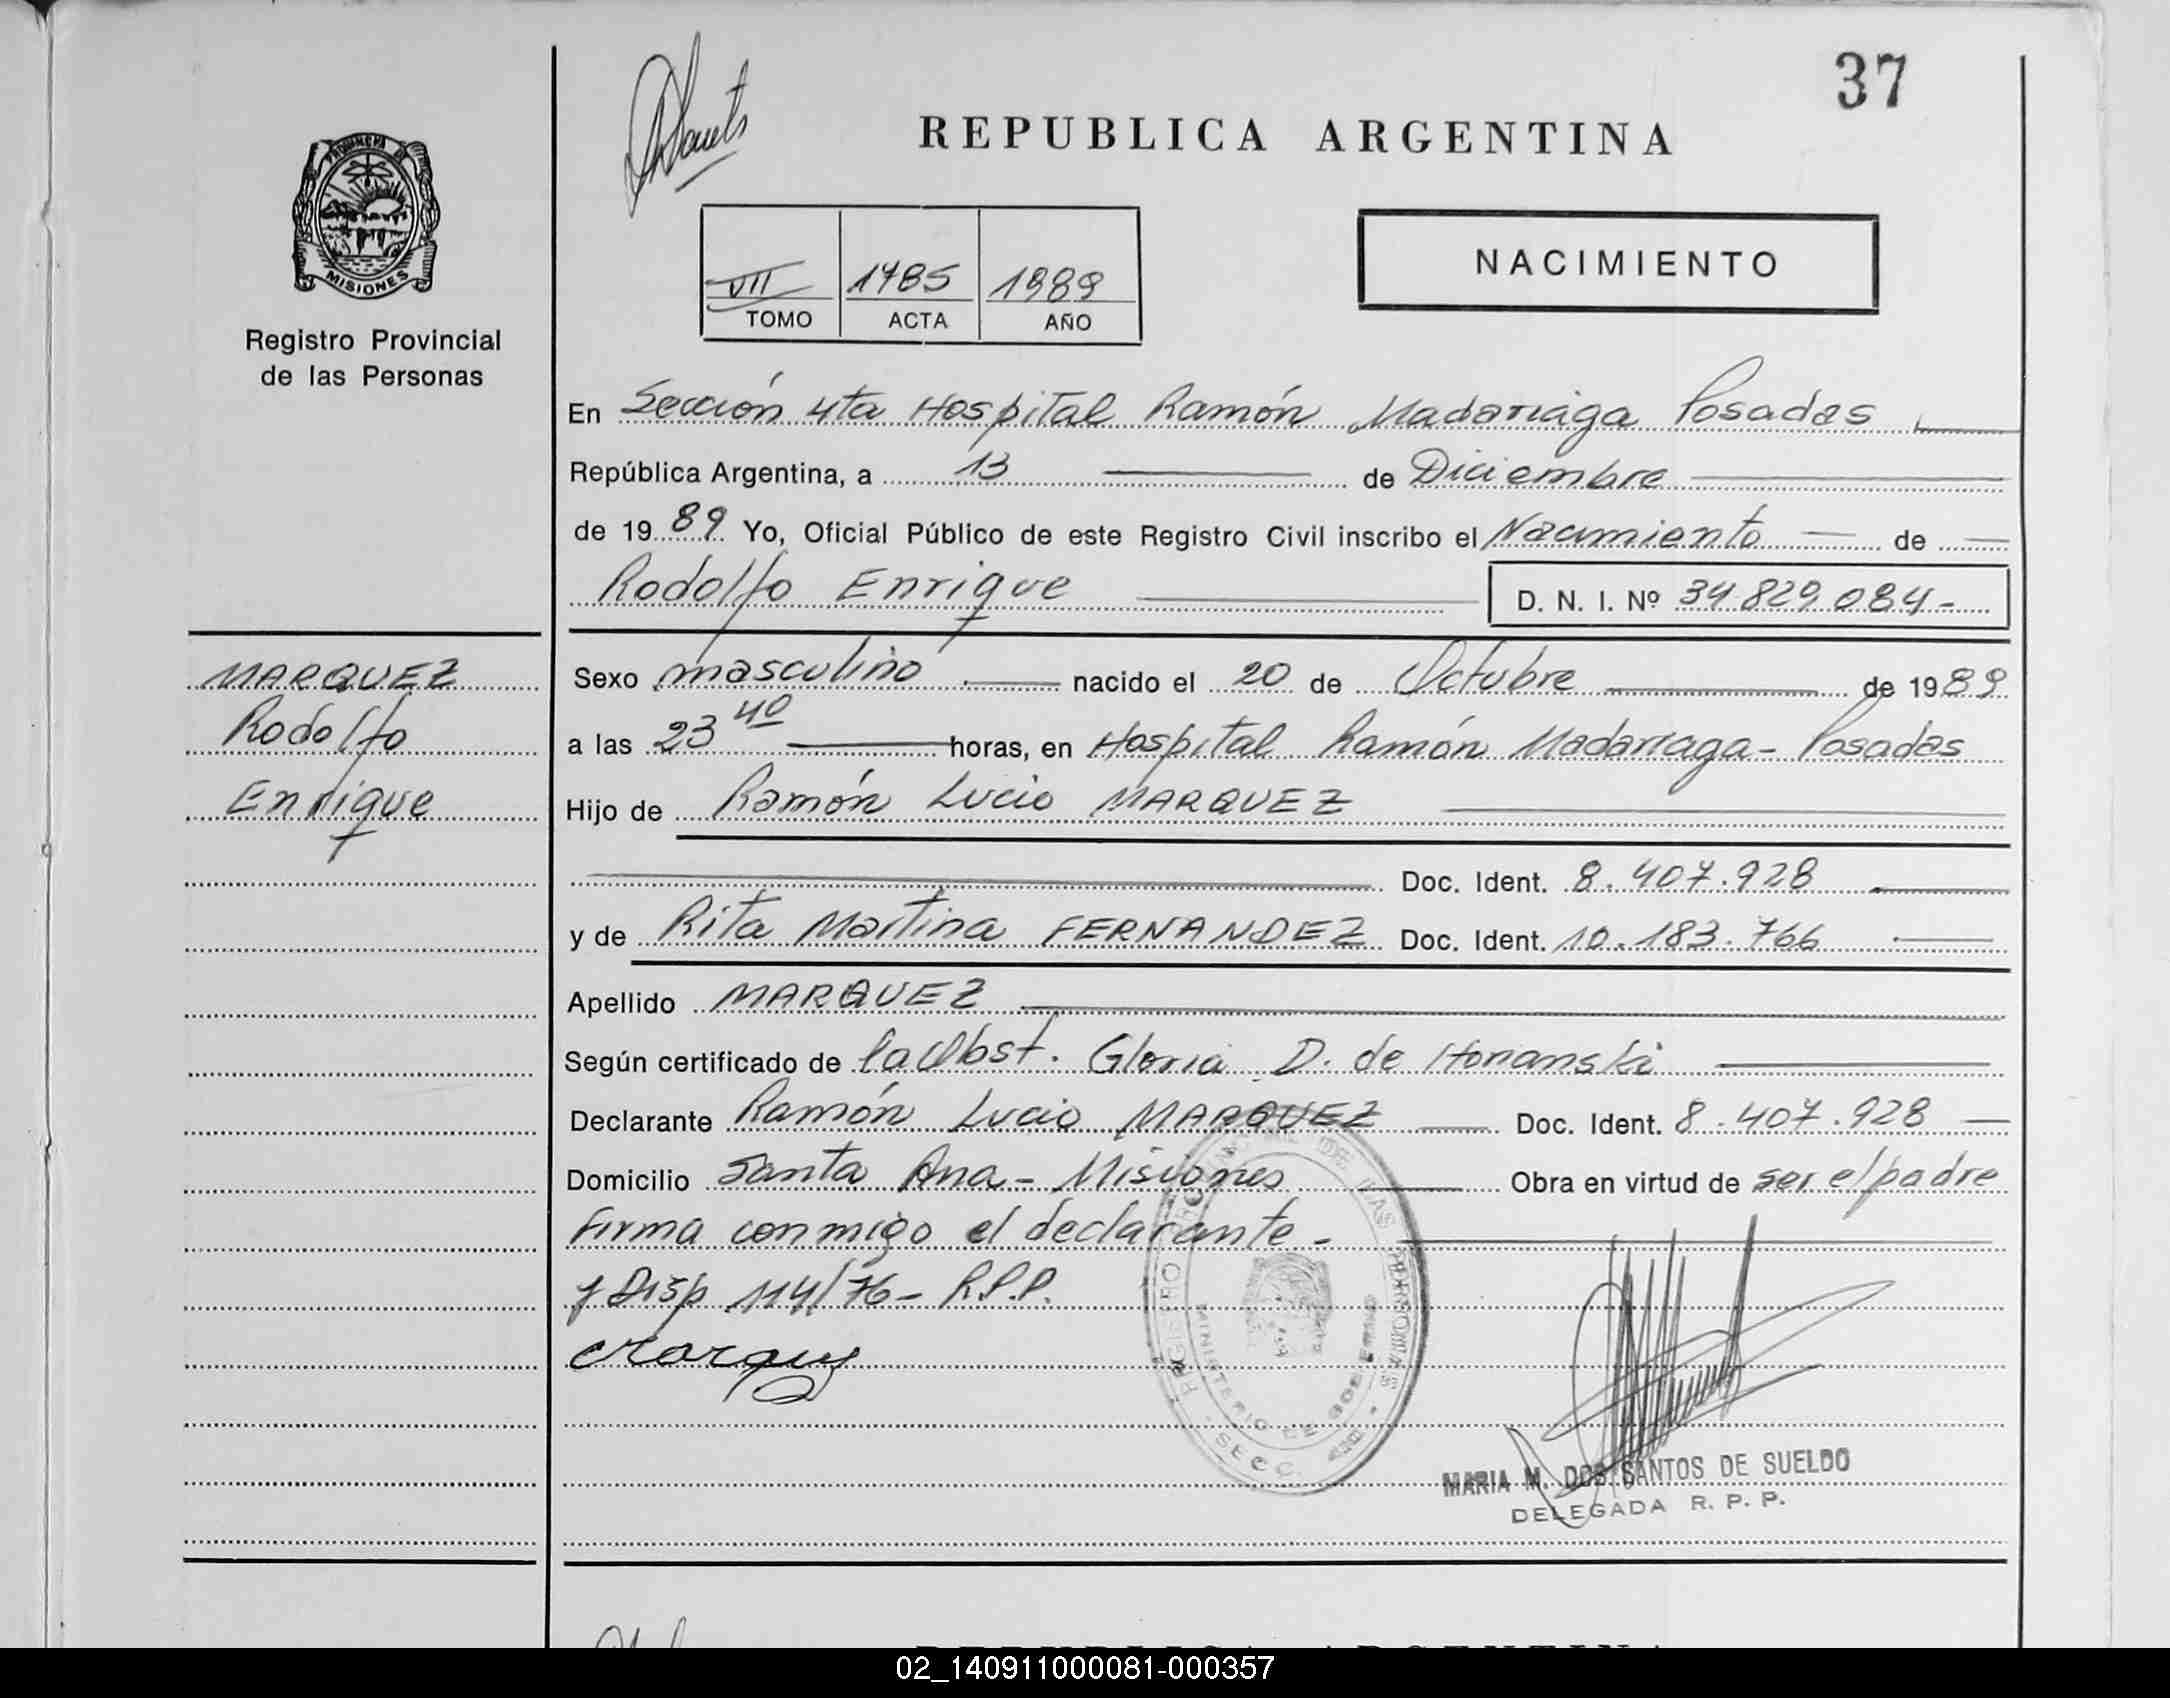 37
REPUBLICA ARGENTINA
PROVINCIA DE
MISIONES
Registro Provincial
de las Personas
VII 1785 1989
TOMO ACTA AÑO
NACIMIENTO
En Sección 4ta Hospital Ramón Madariaga Posadas
República Argentina, a 13 de Diciembre
de 1989 Yo, Oficial Público de este Registro Civil inscribo el Nacimiento de
Rodolfo Enrique D. N. I. Nº 34.829.084-
MARQUEZ
Rodolfo
Enrique
Sexo masculino nacido el 20 de Octubre de 1989
a las 23 40 horas, en Hospital Ramón Madariaga - Posadas
Hijo de Ramón Lucio MARQUEZ
Doc. Ident. 8.407.928
y de Rita Martina FERNANDEZ Doc. Ident. 10.183.766
Apellido MARQUEZ
Según certificado de la Obst. Gloria D. de Honanski
Declarante Ramón Lucio MARQUEZ Doc. Ident. 8.407.928
Domicilio Santa Ana - Misiones Obra en virtud de ser el padre
Firma conmigo el declarante -
y Disp 114/76 - R.P.P.
Marquez
REGISTRO DE LAS PERSONAS
MINISTERIO DE GOBIERNO
SECC. 4ta
MARIA M. DOS SANTOS DE SUELDO
DELEGADA R. P. P.
REPUBLICA ARGENTINA
02_140911000081-000357